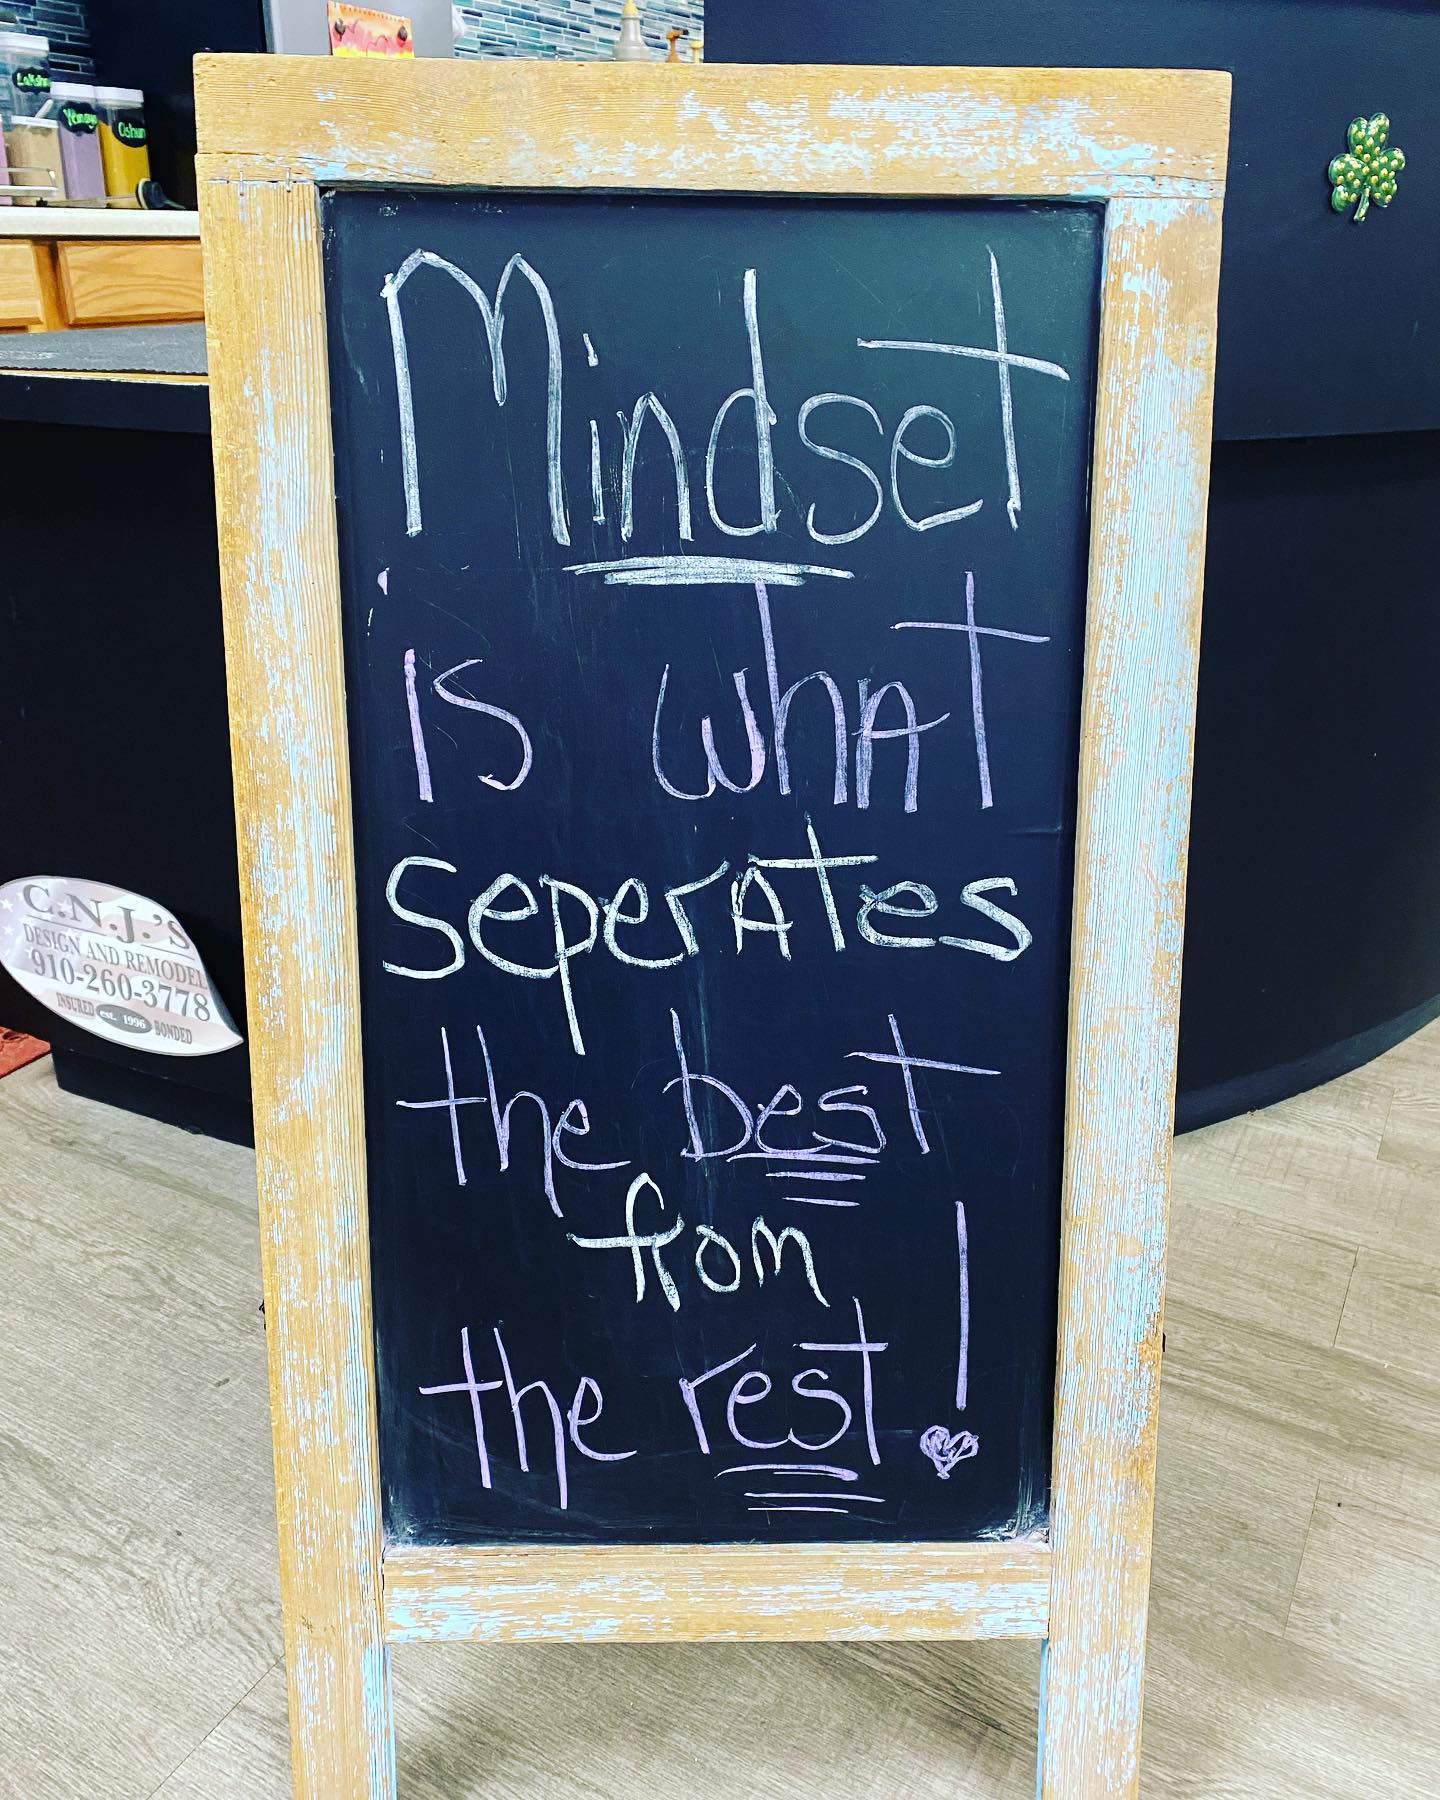 Lakshmi
Yemaya
Oshun
Mindset
is what
seperates
the best
from
the rest!
C.N.J.'s
DESIGN AND REMODEL
910-260-3778
INSURED est. 1996 BONDED